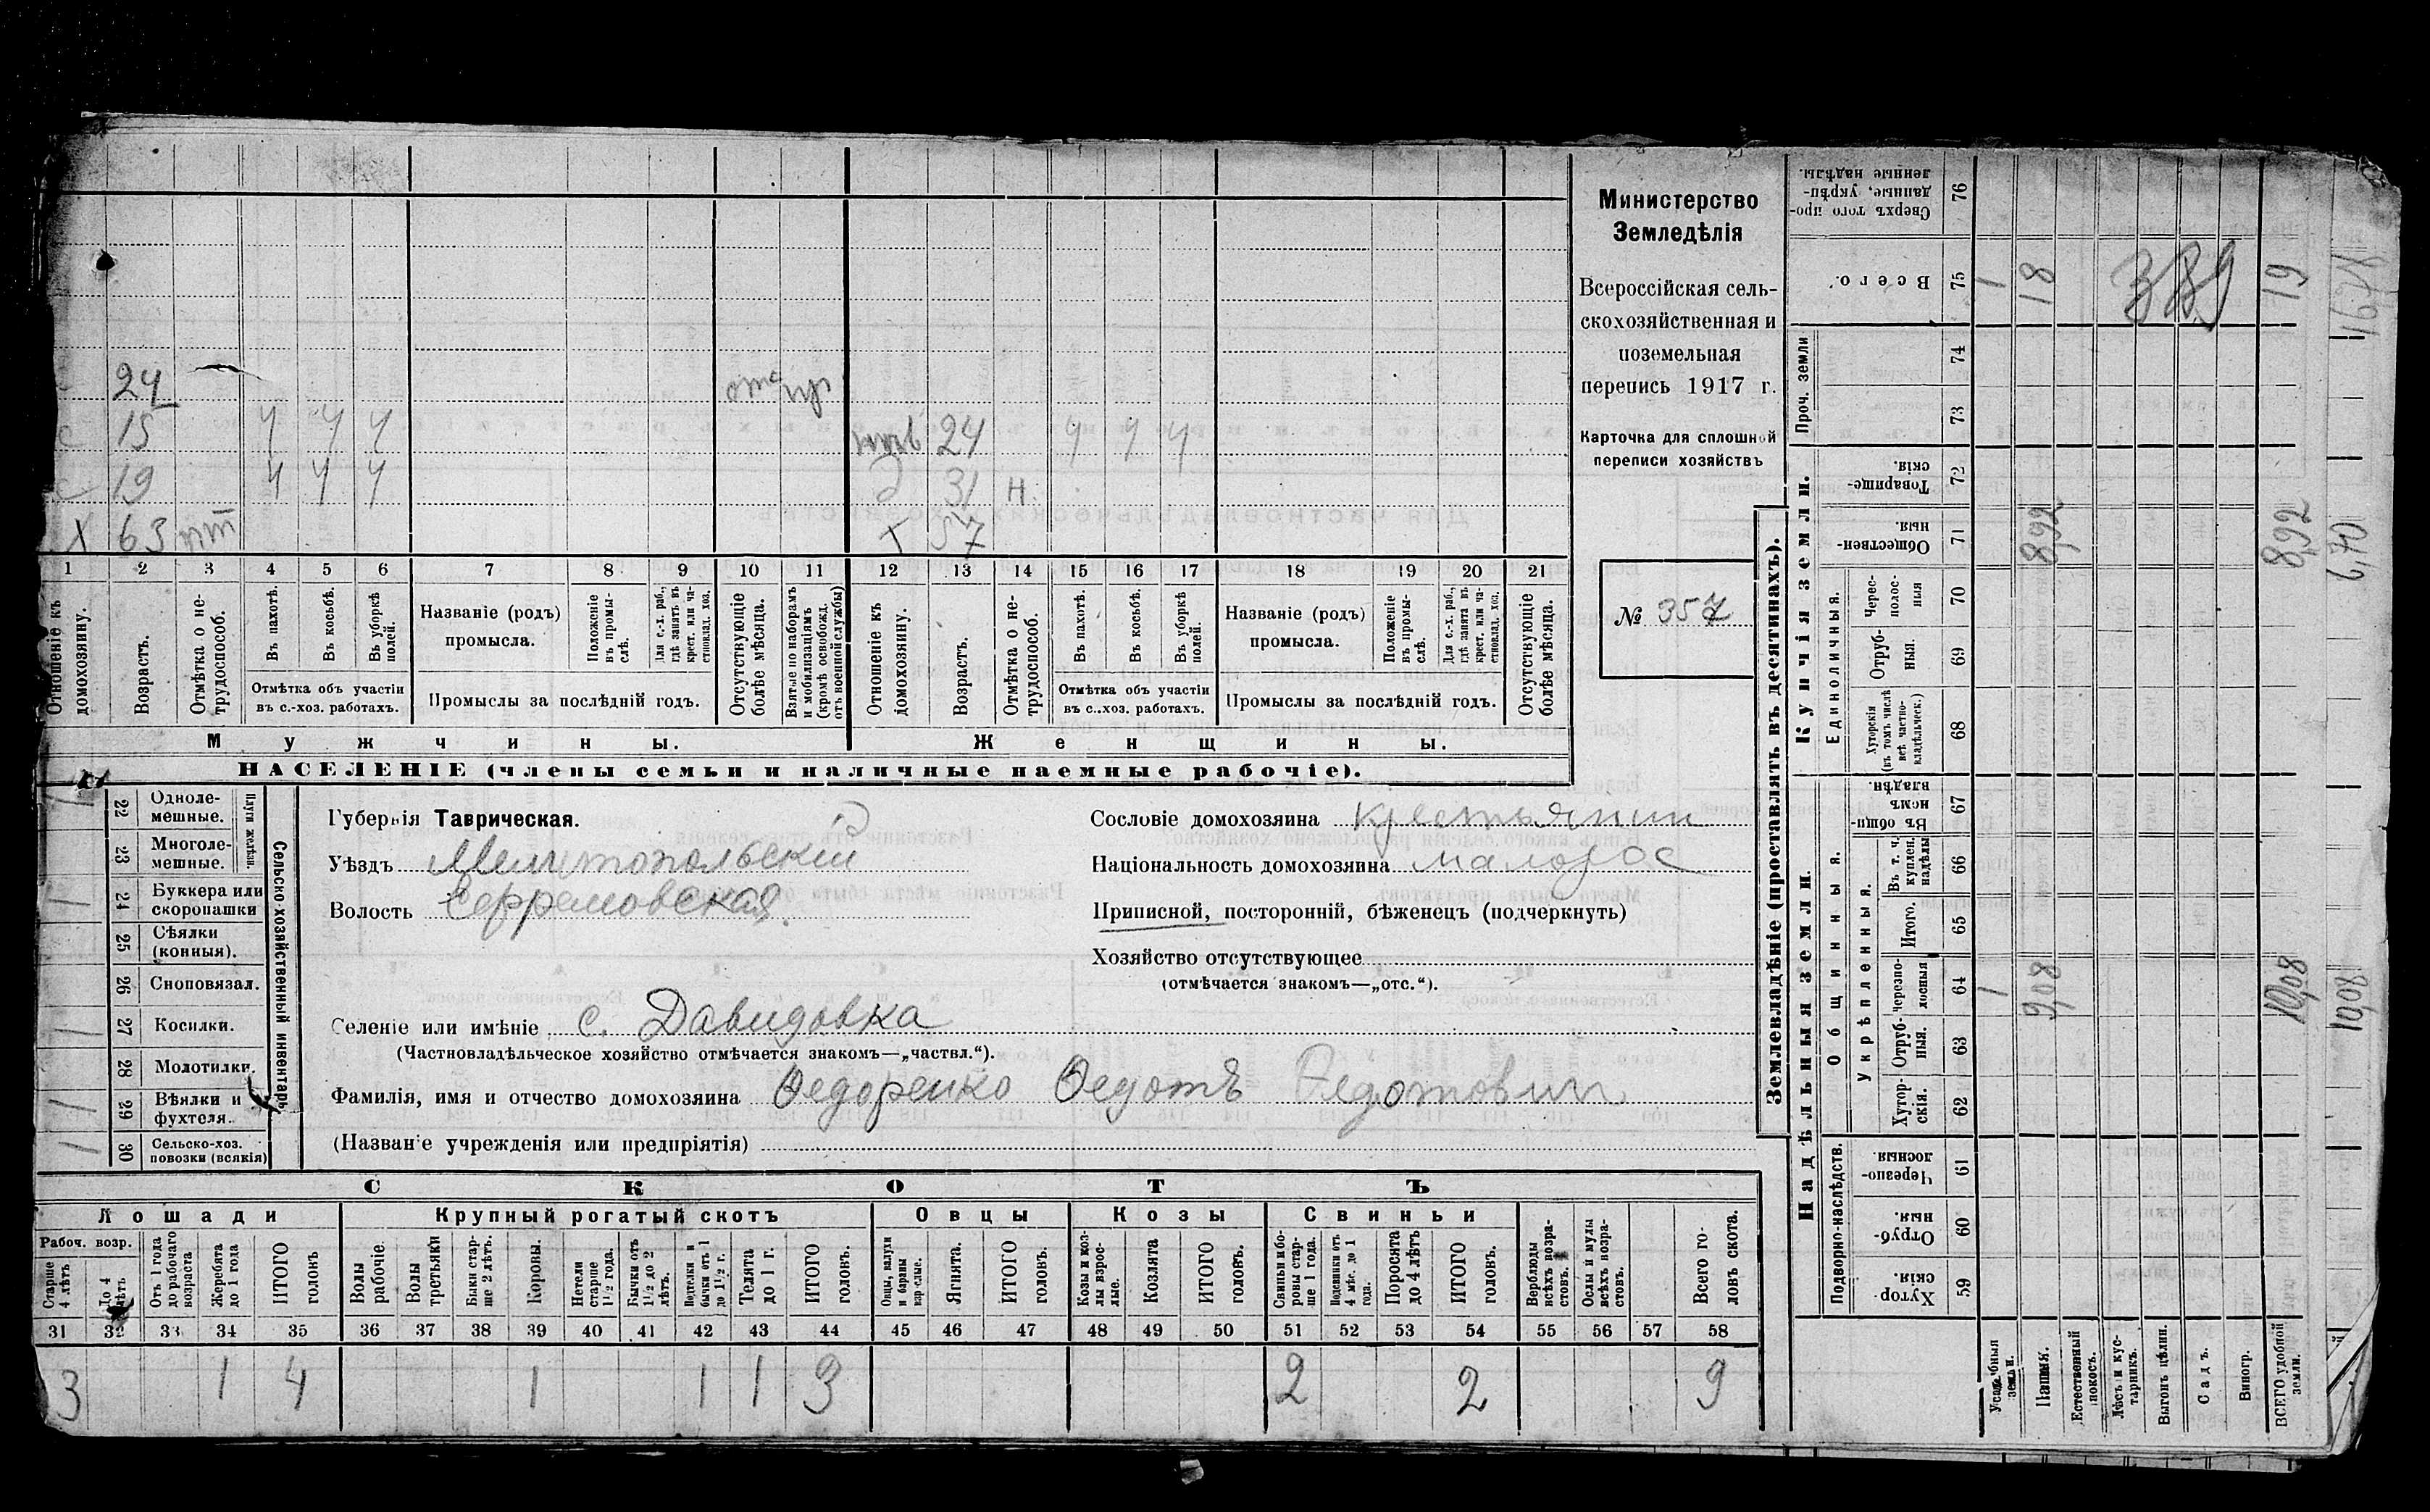 Министерство
Земледѣлія
Всероссійская сель-
скохозяйственная и
поземельная
перепись 1917 г.
Карточка для сплошной
переписи хозяйствъ
№ 357
24
15 4 4 4 24 4 4 4
с 19 4 4 4 д 31 н.
х 63 57
1 2 3 4 5 6 7 8 9 10 11 12 13 14 15 16 17 18 19 20 21
Отношеніе къ домохозяину.
Возрастъ.
Отмѣтка о не-трудоспособ.
Въ пахотѣ.
Въ косьбѣ.
Въ уборкѣ полей.
Отмѣтка объ участіи
въ с.-хоз. работахъ.
Названіе (родъ)
промысла.
Положеніе въ промы-слѣ.
Для с.-х. раб., гдѣ занятъ въ крест. или ча-стновлад. хоз.
Промыслы за послѣдній годъ.
Отсутствующіе болѣе мѣсяца.
Взятые по наборамъ и мобилизаціямъ (кромѣ освобожд. отъ военной службы)
Отношеніе къ домохозяину.
Возрастъ.
Отмѣтка о не-трудоспособ.
Въ пахотѣ.
Въ косьбѣ.
Въ уборкѣ полей.
Отмѣтка объ участіи
въ с..хоз. работахъ.
Названіе (родъ)
промысла.
Положеніе въ промы-слѣ.
Для с.-х. раб., гдѣ занята въ крест. или ча-стновлад. хоз.
Промыслы за послѣдній годъ.
Отсутствующіе болѣе мѣсяца.
Мужчины.
Женщины.
НАСЕЛЕНІЕ (члены семьи и наличные наемные рабочіе).
Сельско-хозяйственный инвентарь
Плуги желѣзн.
22 Одноле-мешные.
23 Многоле-мешные.
24 Буккера или скоропашки
25 Сѣялки (конныя).
26 Сноповязал.
27 Косилки.
28 Молотилки.
29 Вѣялки и фухтеля.
30 Сельско-хоз. повозки (всякія)
Губернія Таврическая.
Уѣздъ Мелитопольскій
Волость Ефремовская
Селеніе или имѣніе с. Давидовка
(Частновладѣльческое хозяйство отмѣчается знакомъ—„частвл.“).
Фамилія, имя и отчество домохозяина Федоренко Федотъ Федотович
(Названіе учрежденія или предпріятія)
Сословіе домохозяина крестьянин
Національность домохозяина малорос
Приписной, посторонній, бѣженецъ (подчеркнуть)
Хозяйство отсутствующее
(отмѣчается знакомъ—„отс.“).
СКОТЪ
Лошади
Крупный рогатый скотъ
Овцы
Козы
Свиньи
Рабоч. возр.
Старше 4 лѣтъ
До 4 лѣтъ
Отъ 1 года до рабочаго возраста
Жеребята до 1 года
ИТОГО головъ
Волы рабочіе.
Волы третьяки
Быки стар-ше 2 лѣтъ.
Коровы.
Нетели старше 1½ года.
Бычки отъ 1½ до 2 лѣтъ.
Подтелки и бычки отъ 1 до 1½ г.
Телята до 1 г.
ИТОГО головъ.
Овцы, валухи и бараны взрослые.
Ягнята.
ИТОГО головъ.
Козы и коз-лы взрос-лые.
Козлята
ИТОГО головъ.
Свиньи и бо-ровы стар-ше 1 года.
Подсвинки отъ 4 мѣс. до 1 года.
Поросята до 4 лѣтъ
ИТОГО головъ.
Верблюды всѣхъ возра-стовъ.
Ослы и мулы всѣхъ возра-стовъ.
Всего го-ловъ скота.
31 32 33 34 35 36 37 38 39 40 41 42 43 44 45 46 47 48 49 50 51 52 53 54 55 56 57 58
3 1 4 1 1 1 3 2 2 9
Землевладѣніе (проставлять въ десятинахъ).
Купчія земли.
Надѣльныя земли.
76 Сверхъ того про-данные, укрѣп-ленные надѣлы.
75 Всего.
Проч. земли
74
73
72 Товарище-скія.
71 Обществен-ныя.
Единоличныя.
70 Черес-полос-ныя
69 Отруб-ныя.
68 Хуторскія (въ томъ числѣ всѣ частно-владѣльческ.)
Общинныя.
67 Въ общи-номъ владѣн.
Укрѣпленныя.
66 Въ т. ч. куплен. надѣлы
65 Итого.
64 Черезпо-лосныя
63 Отруб-ныя.
62 Хутор-скія.
Подворно-наслѣдств.
61 Черезпо-лосныя.
60 Отруб-ныя.
59 Хутор-скія.
Усадебныя земли.
Пашня.
Естественный покосъ.
Лѣсъ и кус-тарникъ.
Выгонъ цѣлин.
Садъ.
Виногр.
ВСЕГО удобной земли.
1 18 389 19
8,92 8,92 6,70
1 9,08 10,08 10,08